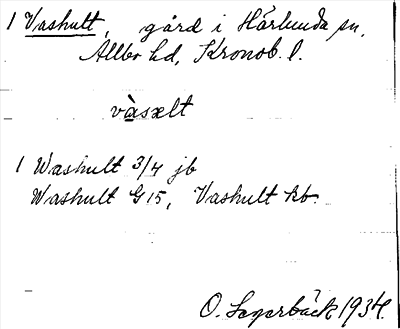 1 Vashult, gård i Härlunda sn,
Allbo hd, Kronob. l.
vàsælt
1 Washult 3/4 jb
Washult G15, Vashult kb.
O. Lagerbäck 1934.